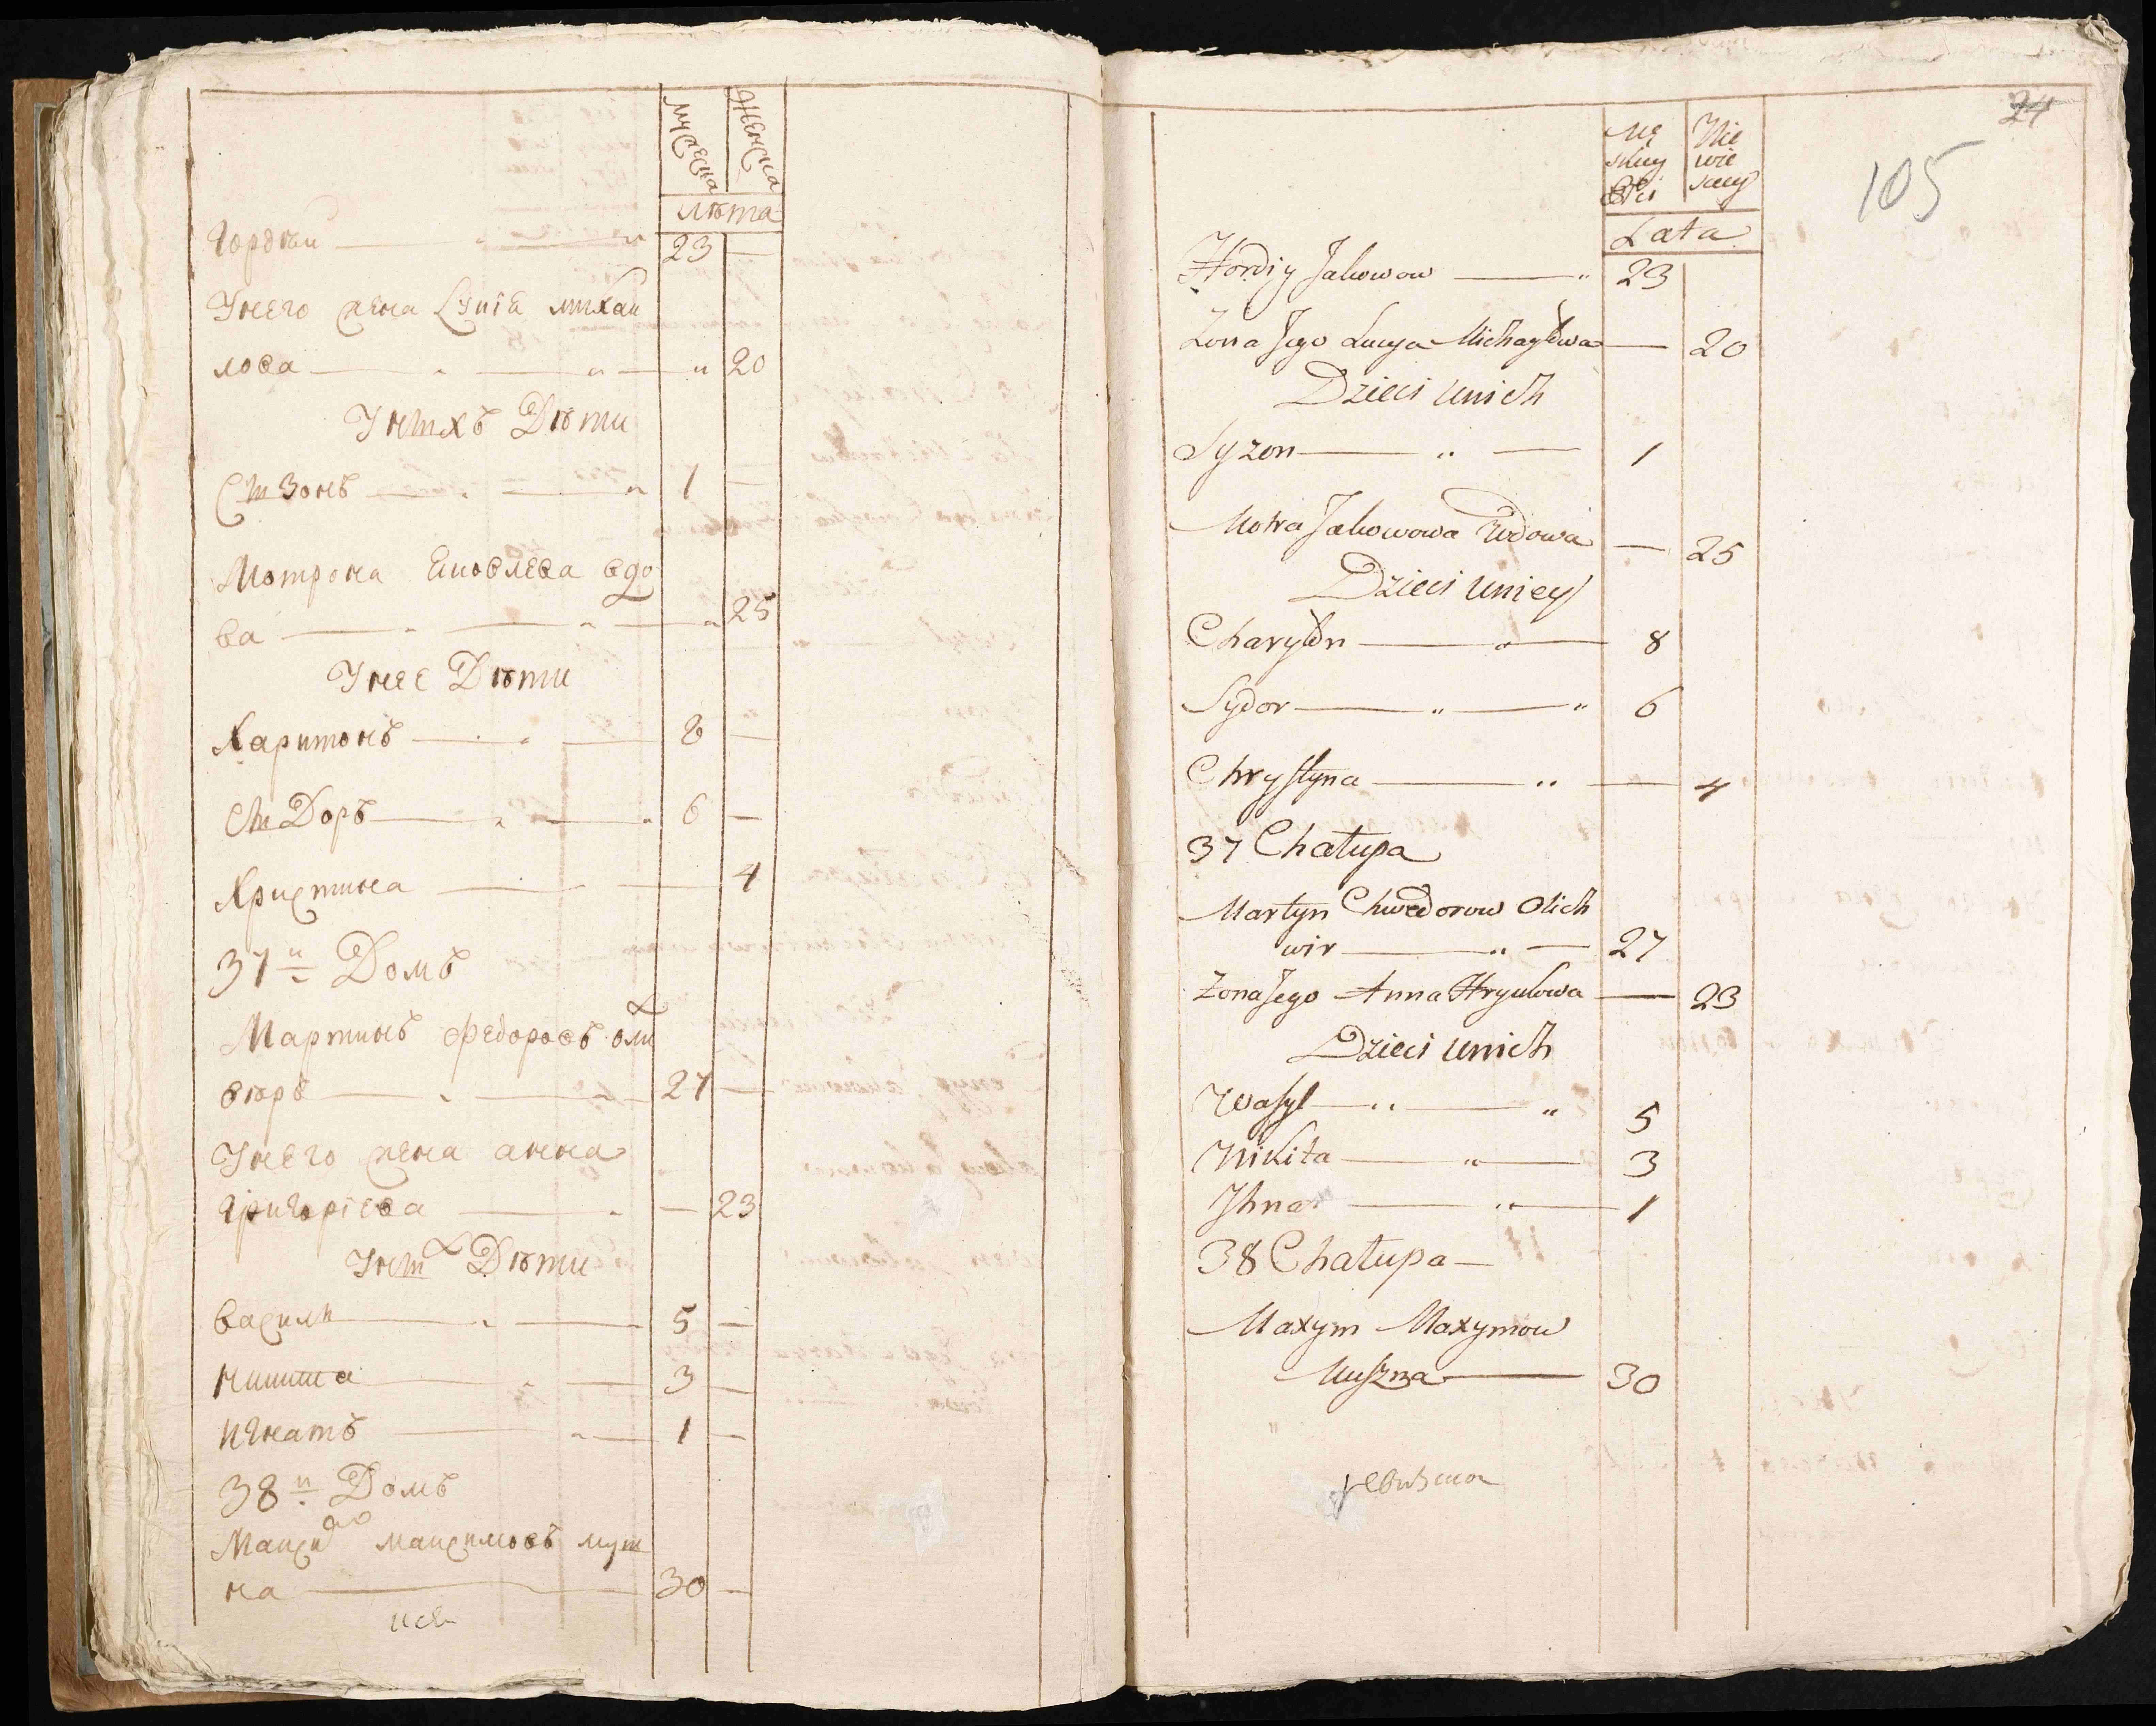 мужеска
женска
лѣта
Гордѣи 23
У него жена Лукіа михаи
лова 20
У нихъ Дѣти
Сизонъ 1
Мотрона Яковлева вдо
ва 25
У нее Дѣти
Харитонъ 8
Сидоръ 6
Христина 4
37й Домъ
Мартинъ Федоровъ оли
вѣръ 27
У него жена анна
григоріева 23
У них Дѣти
василь 5
никита 3
игнатъ 1
38й Домъ
Максим максимовъ муш
на 30
24
105
Mę
skiey
Płci
Nie
wie
sciey
Lata
Hordiy Jakowow 23
Zona Jego Lucya Michayłowa 20
Dzieci unich
Syzon 1
Motra Jakowowa Wdowa 25
Dzieci uniey
Charyton 8
Sydor 6
Chrystyna 4
37 Chałupa
Martyn Chwedorow Olich
wir 27
Zona Jego Anna Hryhowa 23
Dzieci unich
Wasyl 5
Nikita 3
Jhnat 1
38 Chałupa
Maxym Maxymow
Muszna 30